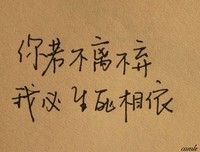 你若不离不弃
我必生死相依